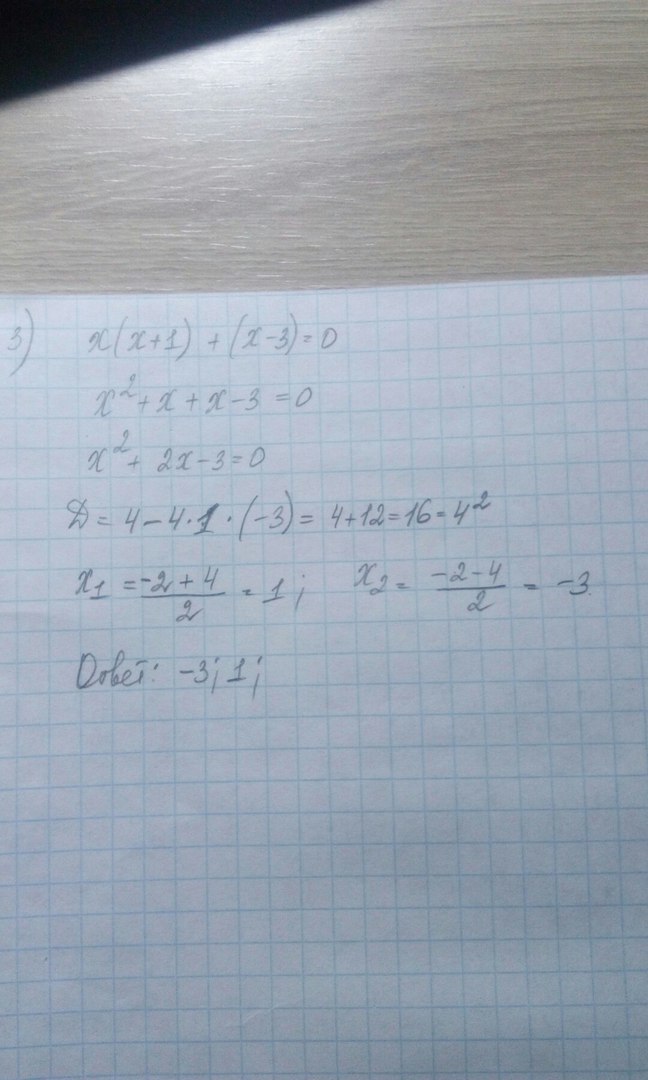 3) x(x+1) + (x-3)=0
x²+x+x-3=0
x²+2x-3=0
D = 4-4·1·(-3)= 4+12=16=4²
x₁ = (-2+4)/2 = 1; x₂ = (-2-4)/2 = -3.
Ответ: -3; 1;